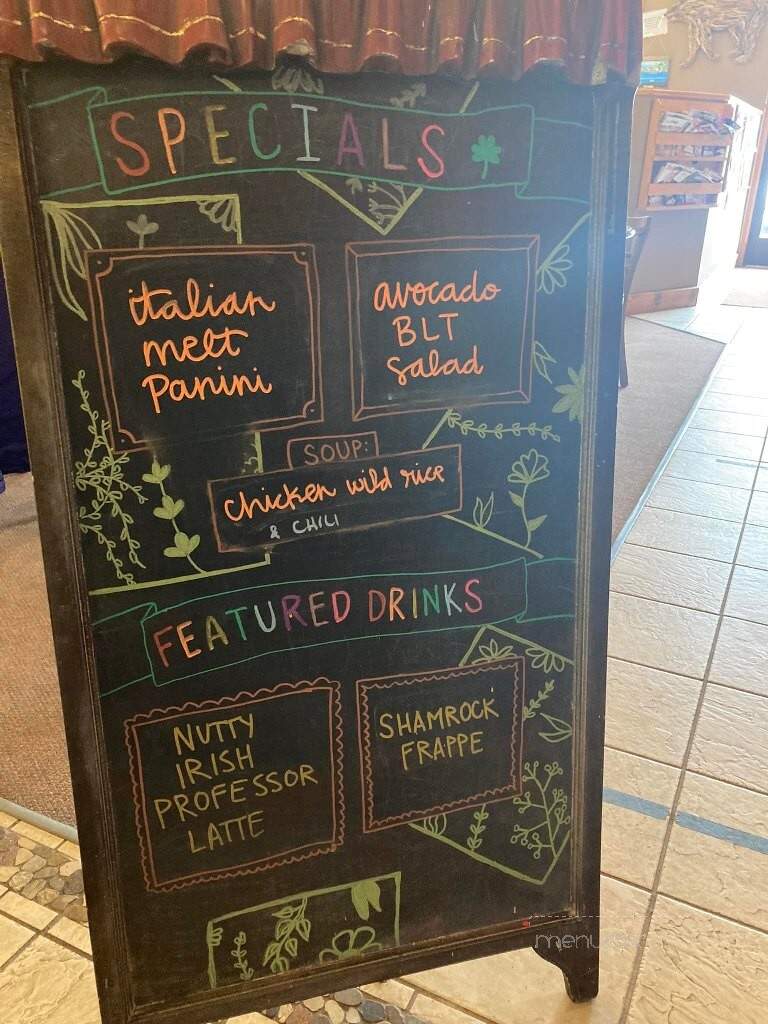 SPECIALS
italian
melt
Panini
avocado
BLT
Salad
SOUP:
chicken wild rice
& CHILI
FEATURED DRINKS
NUTTY
IRISH
PROFESSOR
LATTE
SHAMROCK
FRAPPE